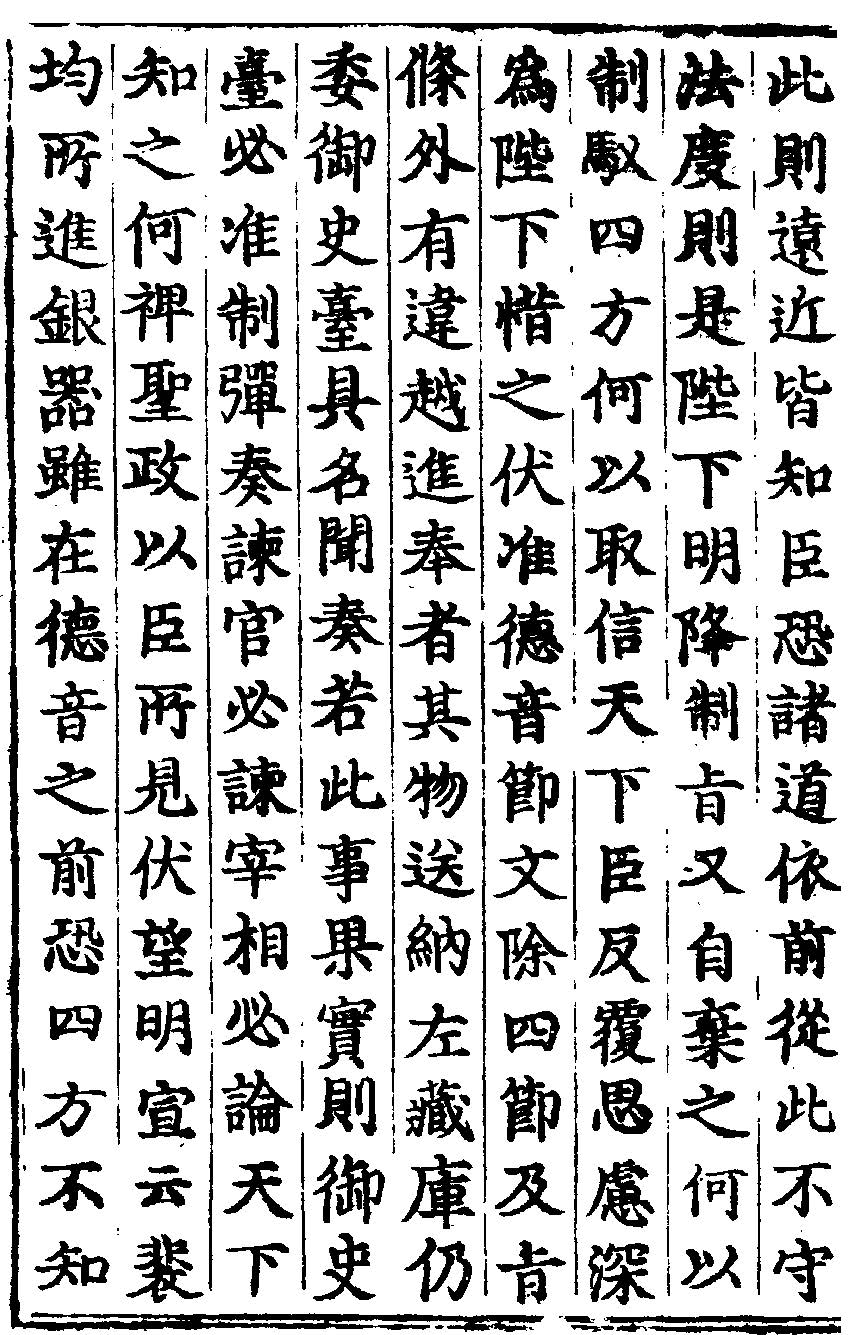 此則遠近皆知臣恐諸道依前從此不守
法度則是陛下明降制旨又自棄之何以
制馭四方何以取信天下臣反覆思慮深
為陛下惜之伏准德音節文除四節及旨
條外有違越進奉者其物送納左藏庫仍
委御史臺具名聞奏若此事果實則御史
臺必准制彈奏諫官必諫宰相必論天下
知之何裨聖政以臣所見伏望明宣云裴
均所進銀器雖在德音之前恐四方不知